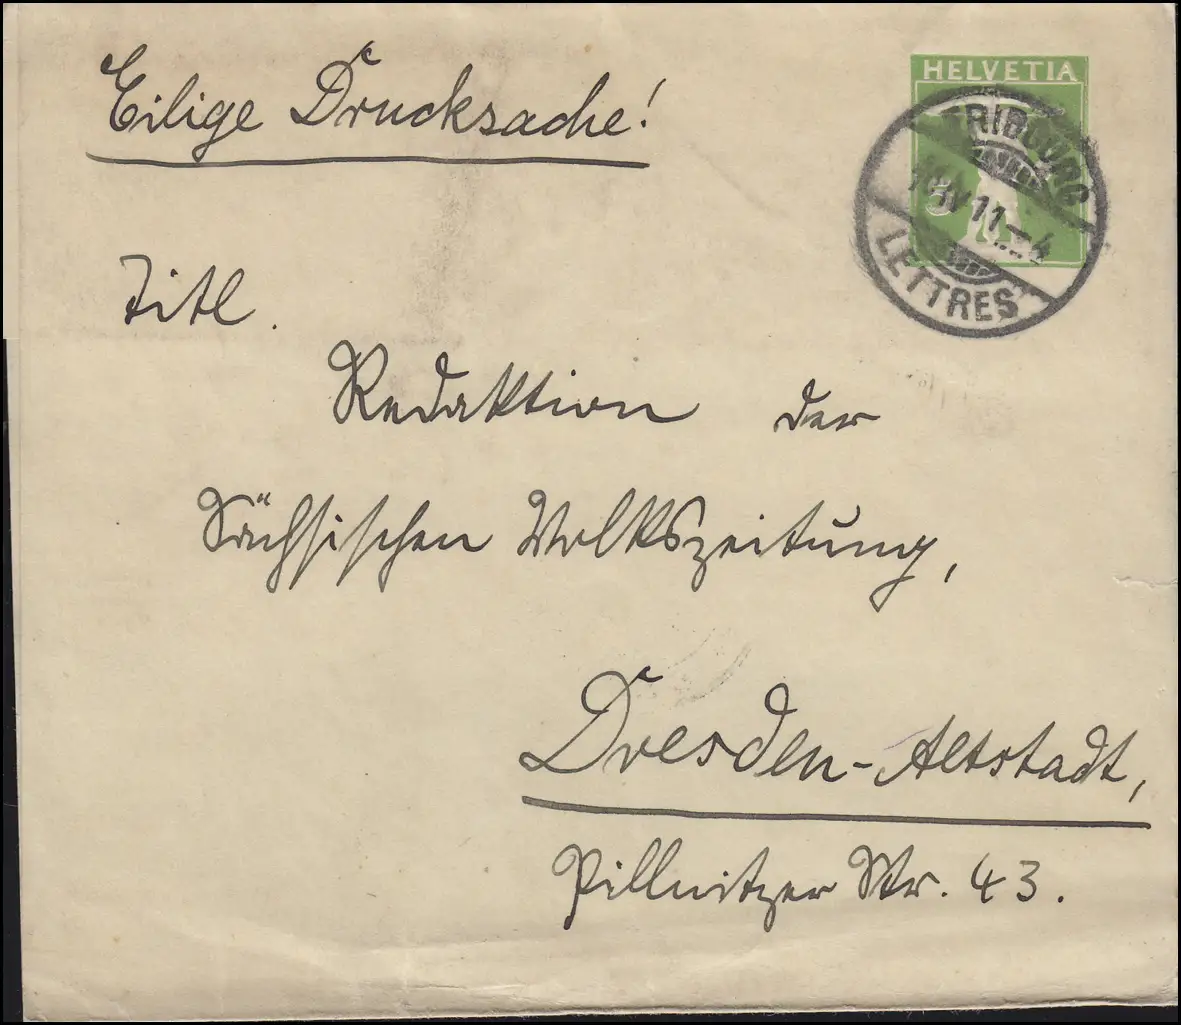 Eilige Drucksache!
HELVETIA
FRIBOURG
LETTRES
Titl.
Redaktion der
Sächsischen Volkszeitung,
Dresden-Altstadt,
Pillnitzer Str. 43.